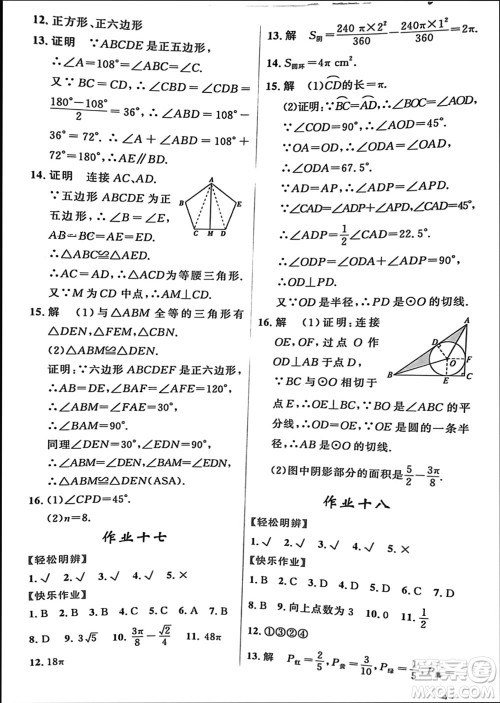 12. 正方形、正六边形
13. 证明 ∵ABCDE 是正五边形,
∴∠A=∠ABC.
又∵∠ABD=∠ABC-∠CBD=
(180°-108°)/2=36°,108°-
36°=72°.∴∠A+∠ABM=
36°+72°=180°.
14. 证明 连接 AC、AD.
∵五边形 ABCDE 为正五
边形,∴△ABC≌△AED.
∴AC=AD.
又∵M 为 CD 中点,∴△ADC 为等腰三角形.
15. 解 (1)与△ABM 全等的三角形有
△DEN,△FEM,△CBN.
(2)△ABM≌△DEN.
证明:∵六边形 ABCDEF 是正六边形,
∴AB=DE,∠A=120°.
∴∠ABM=∠FAM=30°.
∴∠ABM=90°.
同理∠DEN=30°,∠DEN=90°.
∴△ABM≌△DEN(ASA).
16. (1)∠CPD=45°.
(2)n=8.
作业十七
【轻松明辨】
1. ✓ 2. ✓ 3. ✓ 4. ✓ 5. ×
【快乐作业】
1. B 2. C 3. A 4. D 5. B 6. B 7. B
8. D 9. 3√5 10. 3π/4-√2/4 11. 48π
12. 18π
13. 解 S阴=240π×2²/360-240π×1²/360=2π.
14. S圆环=4π cm².
15. 解 (1)CD的长=π.
(2)证明:∵BC=AD,∴∠BOC=∠AOD,
∵∠COD=90°,∴∠AOD=45°.
∵OA=OD,∴∠ODA=∠OAD.
∴∠ODA=67.5°.
∵AD=AP,∴∠ADP=∠APD.
∵∠CAD=∠ADP+∠APD,∠CAD=
45°,∴∠ADP=1/2∠CAD=22.5°.
∴∠ODP=∠ODA+∠ADP=90°.
∴OD⊥PD.
又∵OD是半径,∴PD是⊙O的切线.
16. 解 (1)证明:连接
OE,OF,过点 O 作
OD⊥AB 于点 D.
∵BC与⊙O相切于
点 E,∴OE⊥BC. ∵BO是∠ABC的平
分线,∴OD=OE,OE为圆的一条半
径.∴AB是⊙O的切线.
(2)图中阴影部分的面积是5/2-3π/8.
作业十八
【轻松明辨】
1. ✓ 2. ✓ 3. ✓ 4. ✓ 5. ×
【快乐作业】
1. B 2. D 3. C 4. C 5. C 6. A 7. B
8. A 9. 向上点数为3 10. 0 11. 1/2
12. ①③②④
13. 解 P红=2/5,P黄=3/10,P绿=1/5,